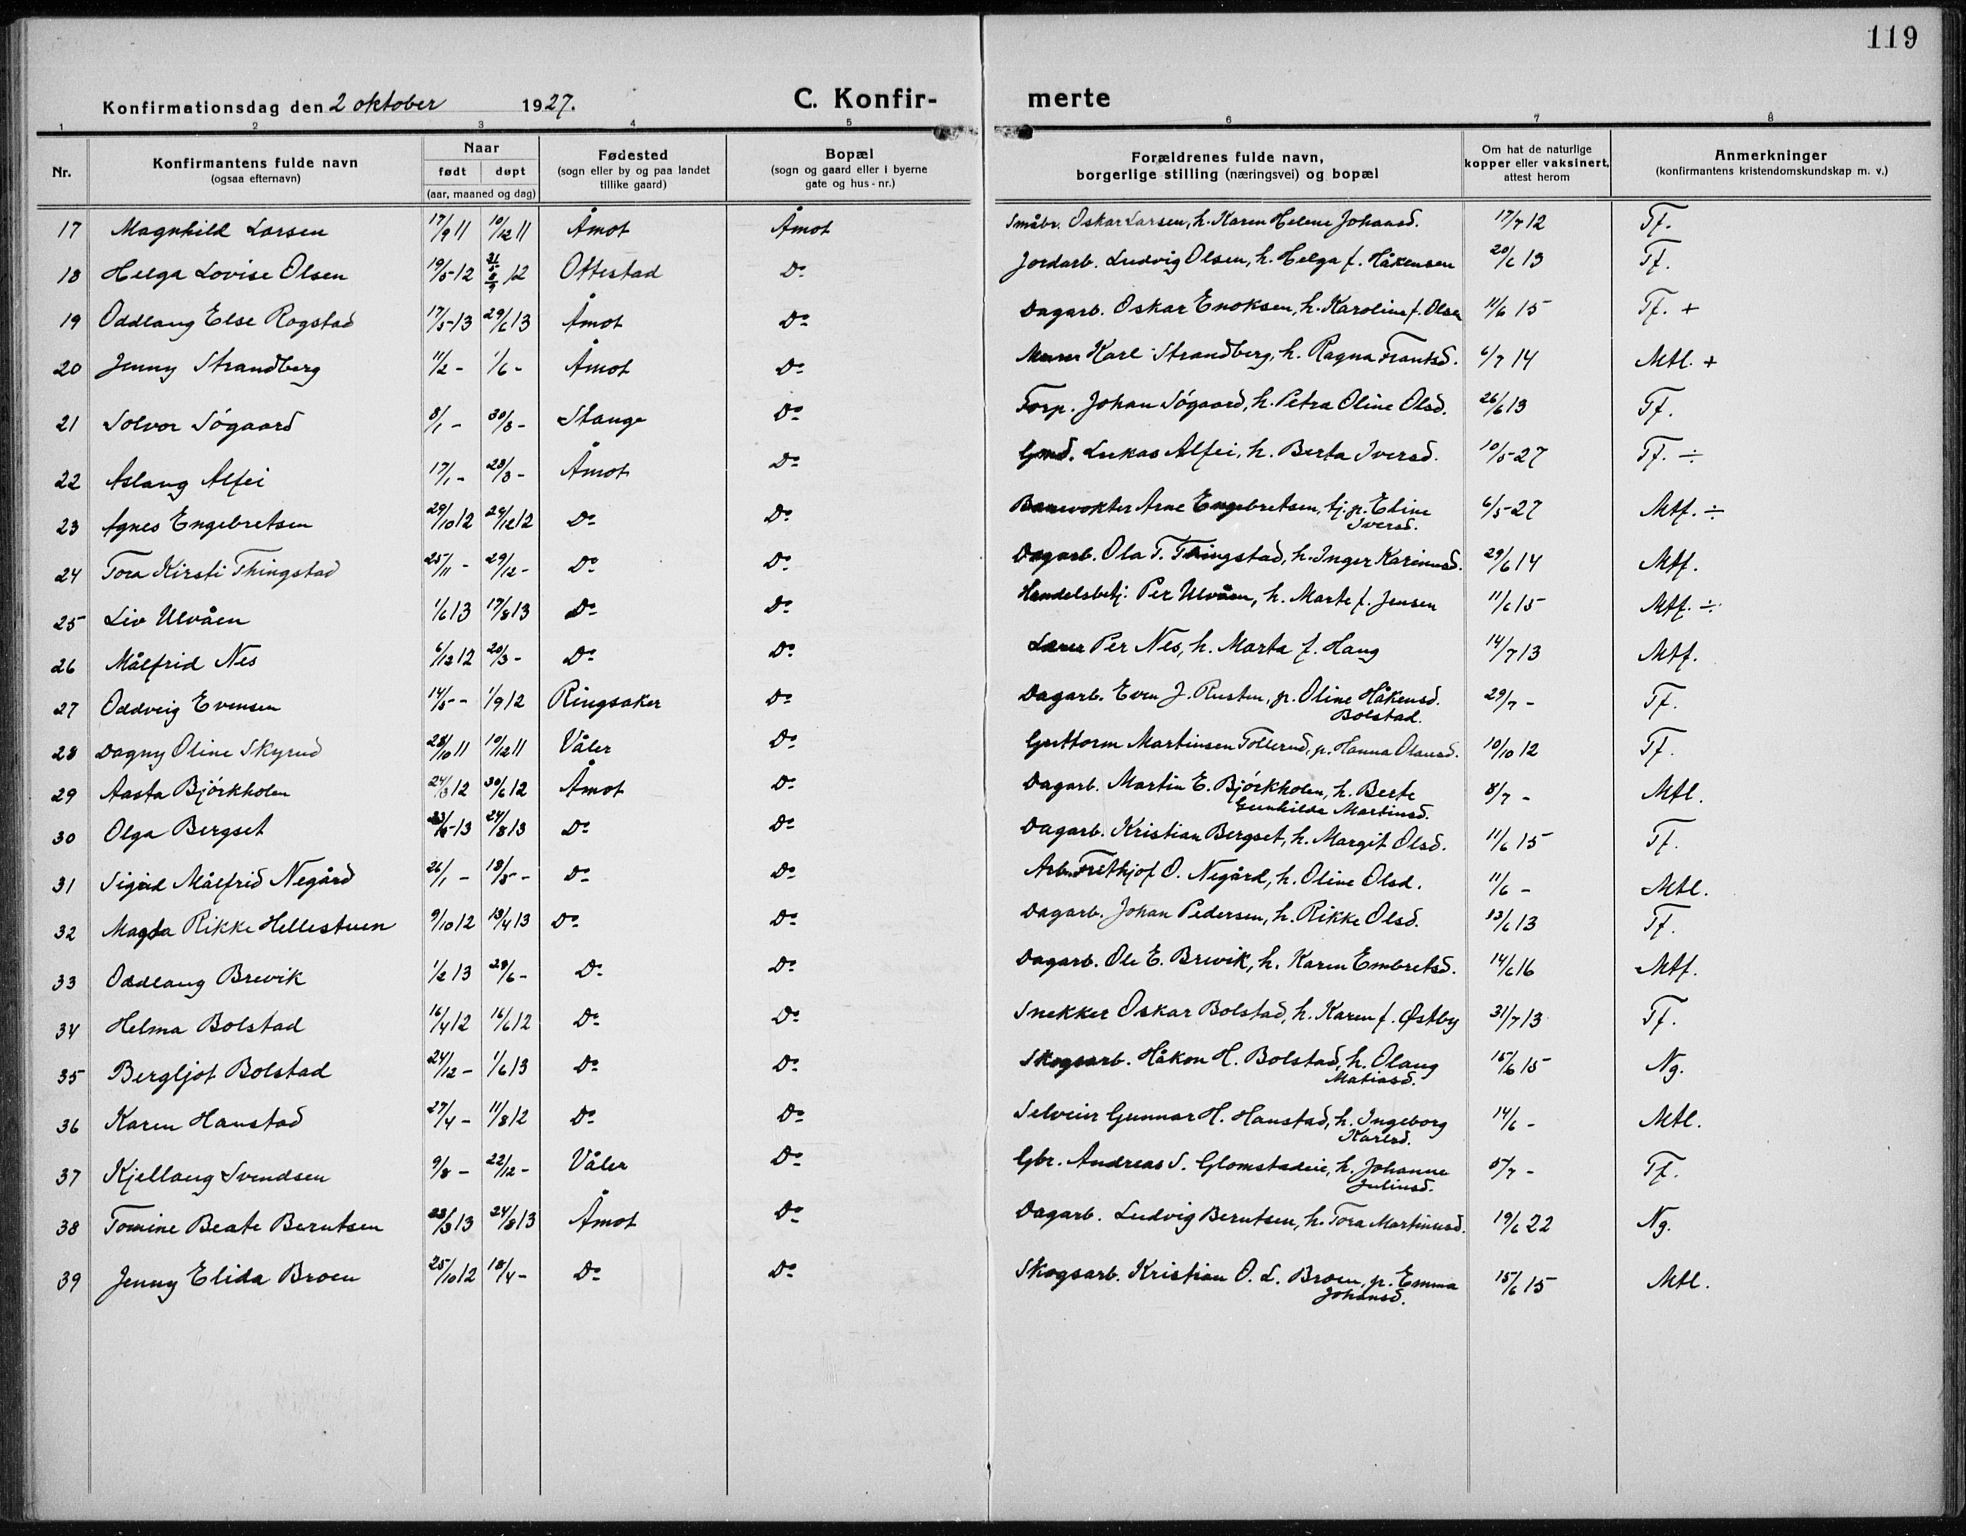 119
Konfirmationsdag den 2 oktober 1927. C. Konfir- merte
1 2 3 4 5 6 7 8
Nr. Konfirmantens fulde navn (ogsaa efternavn) Naar født døpt (aar, maaned og dag) Fødested (sogn eller by og paa landet tillike gaard) Bopæl (sogn og gaard eller i byerne gate og hus-nr.) Forældrenes fulde navn, borgerlige stilling (næringsvei) og bopæl Om hat de naturlige kopper eller vaksinert, attest herom Anmerkninger (konfirmantens kristendomskundskap m. v.)
17 Magnhild Larsen 17/9 11 10/12 11 Åmot Åmot Småbr. Oskar Larsen, h. Karen Helene Johansd. 17/7 12 Tf.
18 Helga Lovise Olsen 19/5 12 12 Ottestad Do Jordarb. Ludvig Olsen, h. Helga f. Håkensen 20/6 13 Tf.
19 Oddlaug Else Rogstad 17/5 13 29/6 13 Åmot Do Dagarb. Oskar Enoksen, h. Karoline f. Olsen 11/6 15 Tf. +
20 Jenny Strandberg 11/2 - 1/6 - Åmot Do Murer Karl Strandberg, h. Ragna Frantsd. 6/7 14 Mtl. +
21 Solvor Søgaard 8/1 - 30/3 - Stange Do Torp. Johan Søgaard, h. Petra Oline Olsd. 26/6 13 Tf.
22 Aslaug Alfei 17/1 - 23/3 - Åmot Do Gmd. Lukas Alfei, h. Berta Iversd. 10/5 27 Tf. ÷
23 Agnes Engebretsen 29/10 12 29/12 12 Do Do Banevokter Arne Engebretsen, tj. p. Eline Iversd. 6/5 27 Mtf. ÷
24 Tora Kirsti Thingstad 25/11 - 29/12 - Do Do Dagarb. Ola T. Thingstad, h. Inger Karinusd. 29/6 14 Mtf.
25 Liv Ulvåen 1/6 13 17/8 13 Do Do Handelsbetj. Per Ulvåen, h. Marte f. Jensen 11/6 15 Mtf. ÷
26 Målfrid Nes 6/12 12 20/3 - Do Do Lærer Per Nes, h. Marta f. Haug 14/7 13 Mtf.
27 Oddveig Evensen 14/5 - 1/9 12 Ringsaker Do Dagarb. Even J. Rusten, p. Oline Håkensd. Bolstad. 29/7 - Tf.
28 Dagny Oline Skyrud 28/10 11 10/12 11 Våler Do Guttorm Martinsen Tollerud, p. Hanna Olausd. 10/10 12 Tf.
29 Aasta Bjørkholen 24/3 12 30/6 12 Åmot Do Dagarb. Martin E. Bjørkholen, h. Berte Gunhilda Martinsd. 8/7 - Mtl.
30 Olga Bergset 13 24/8 13 Do Do Dagarb. Kristian Bergset, h. Margit Olsd. 11/6 15 Tf.
31 Sigrid Målfrid Negård 26/1 - 13/5 - Do Do Arb. Frithjof O. Negård, h. Oline Olsd. 11/6 - Mtl.
32 Magda Rikke Hellestuen 9/10 12 13/4 13 Do Do Dagarb. Johan Pedersen, h. Rikke Olsd. 13/6 13 Tf.
33 Oddlaug Brevik 1/2 13 29/6 - Do Do Dagarb. Ole E. Brevik, h. Karen Embretsd. 14/6 16 Mtf.
34 Helma Bolstad 16/4 12 16/6 12 Do Do Snekker Oskar Bolstad, h. Karen f. Østby 31/7 13 Tf.
35 Bergljot Bolstad 24/12 - 1/6 13 Do Do Skogsarb. Håkon H. Bolstad, h. Olaug Matiasd. 15/6 15 Ng.
36 Karen Hanstad 27/4 - 11/8 12 Do Do Selveier Gunnar H. Hanstad, h. Ingeborg Karlsd. 14/6 - Mtl.
37 Kjellaug Svendsen 9/8 - 22/12 - Våler Do Gbr. Andreas S. Glomstadeie, h. Johanne Juliusd. 5/7 - Tf.
38 Tomine Beate Berntsen 23/3 13 24/8 13 Åmot Do Dagarb. Ludvig Berntsen, h. Tora Martinusd. 19/6 22 Ng.
39 Jenny Elida Broen 25/10 12 18/4 - Do Do Skogsarb. Kristian O. L. Broen, p. Emma Johansd. 15/6 15 Mtl.